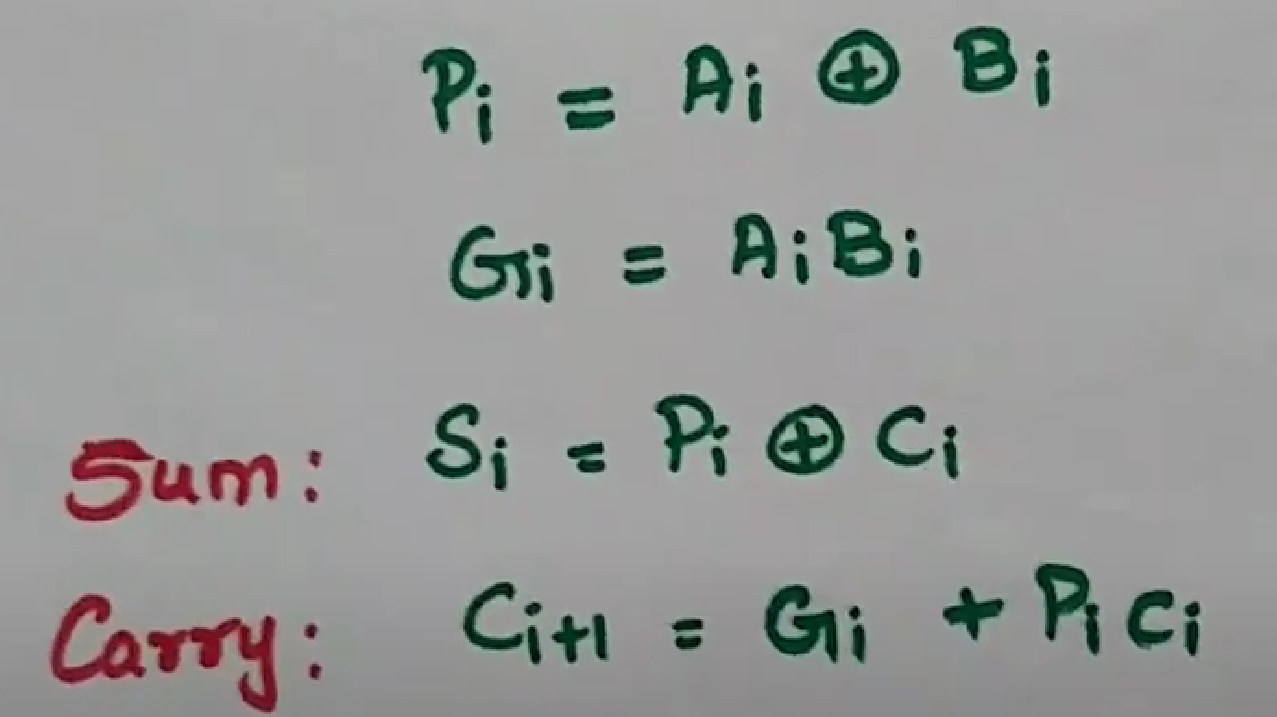 Pi = Ai ⊕ Bi
Gi = AiBi
Sum: Si = Pi ⊕ Ci
Carry: Ci+1 = Gi + PiCi